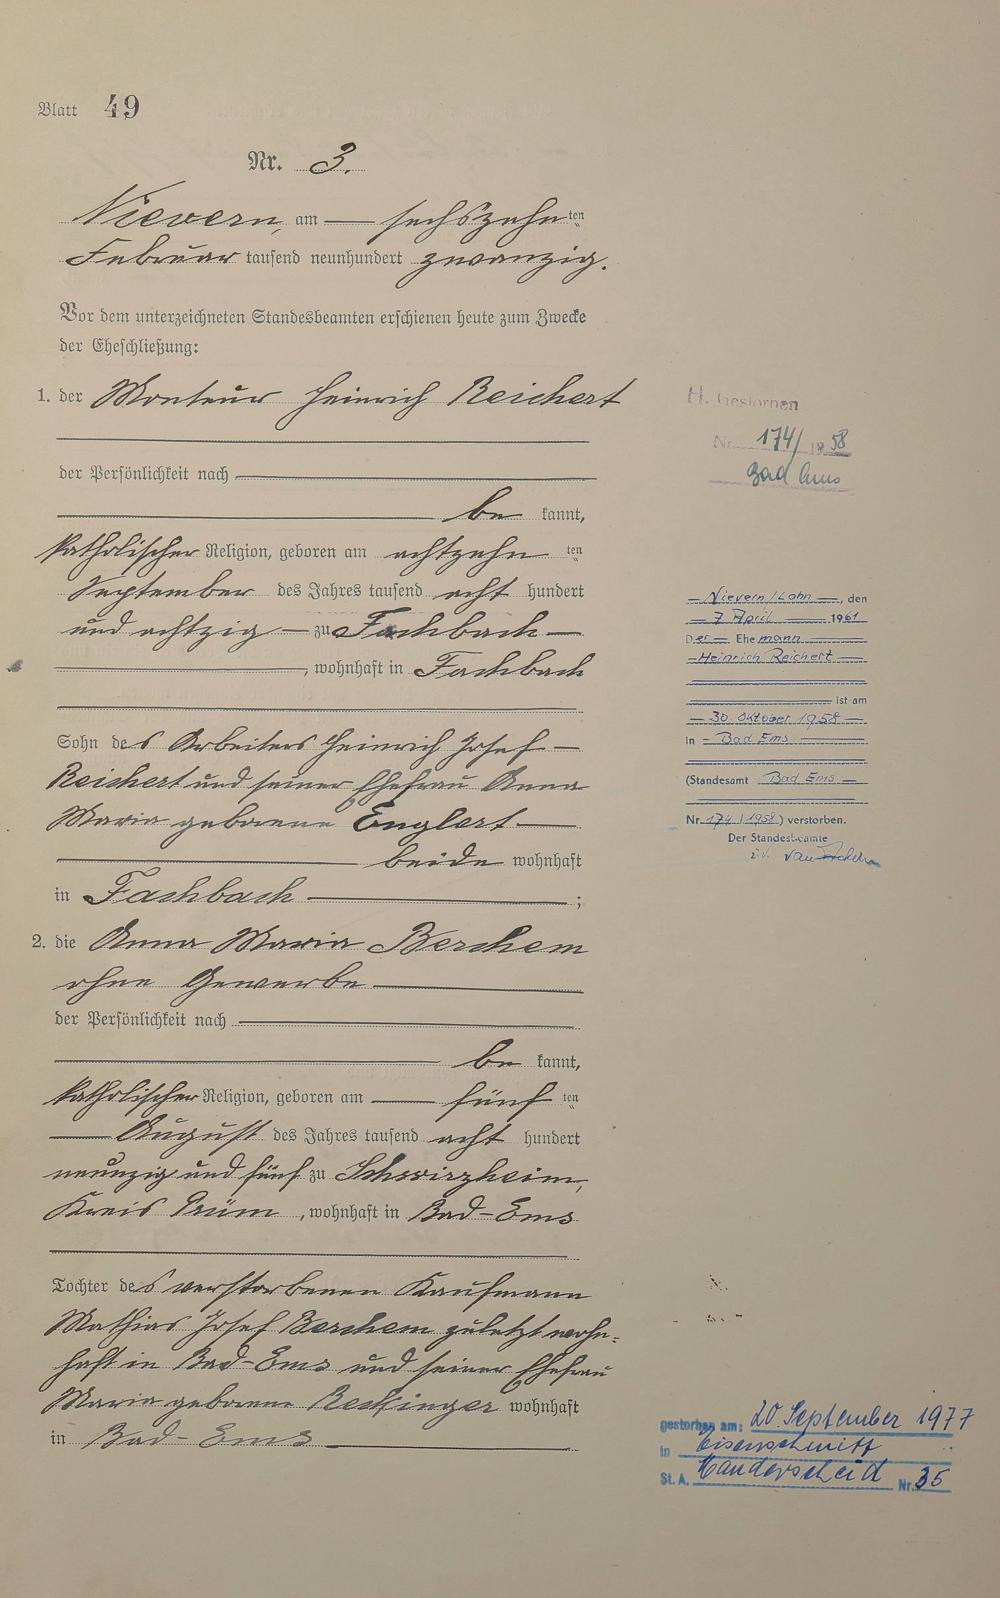 Blatt 49
Nr. 3.
Nievern, am sechszehnten
Februar tausend neunhundert zwanzig.
Vor dem unterzeichneten Standesbeamten erschienen heute zum Zwecke
der Eheschließung:
1. der Monteur Heinrich Reichert
der Persönlichkeit nach
be kannt,
katholischer Religion, geboren am achtzehn ten
September des Jahres tausend acht hundert
und achtzig zu Fachbach
, wohnhaft in Fachbach
Sohn des Arbeiters Heinrich Josef
Reichert und seiner Ehefrau Anna
Maria geborene Englert
beide wohnhaft
in Fachbach ;
2. die Anna Maria Berchem
ohne Gewerbe
der Persönlichkeit nach
be kannt,
katholischer Religion, geboren am fünf ten
August des Jahres tausend acht hundert
neunzig und fünf zu Schwirzheim,
Kreis Prüm, wohnhaft in Bad-Ems
Tochter des verstorbenen Kaufmann
Mathias Josef Berchem zuletzt wohn-
haft in Bad-Ems und seiner Ehefrau
Maria geborene Reckinger wohnhaft
in Bad-Ems
H. Gestorben
Nr. 174/1958
Bad Ems
Nievern/Lahn, den
7. April 1961
Der Ehemann
Heinrich Reichert
ist am
30. Oktober 1958
in Bad Ems
(Standesamt Bad Ems
Nr. 174/1958) verstorben.
Der Standesbeamte
i.V.
gestorben am: 20. September 1977
in Eisenschmitt
St. A. Manderscheid Nr. 35